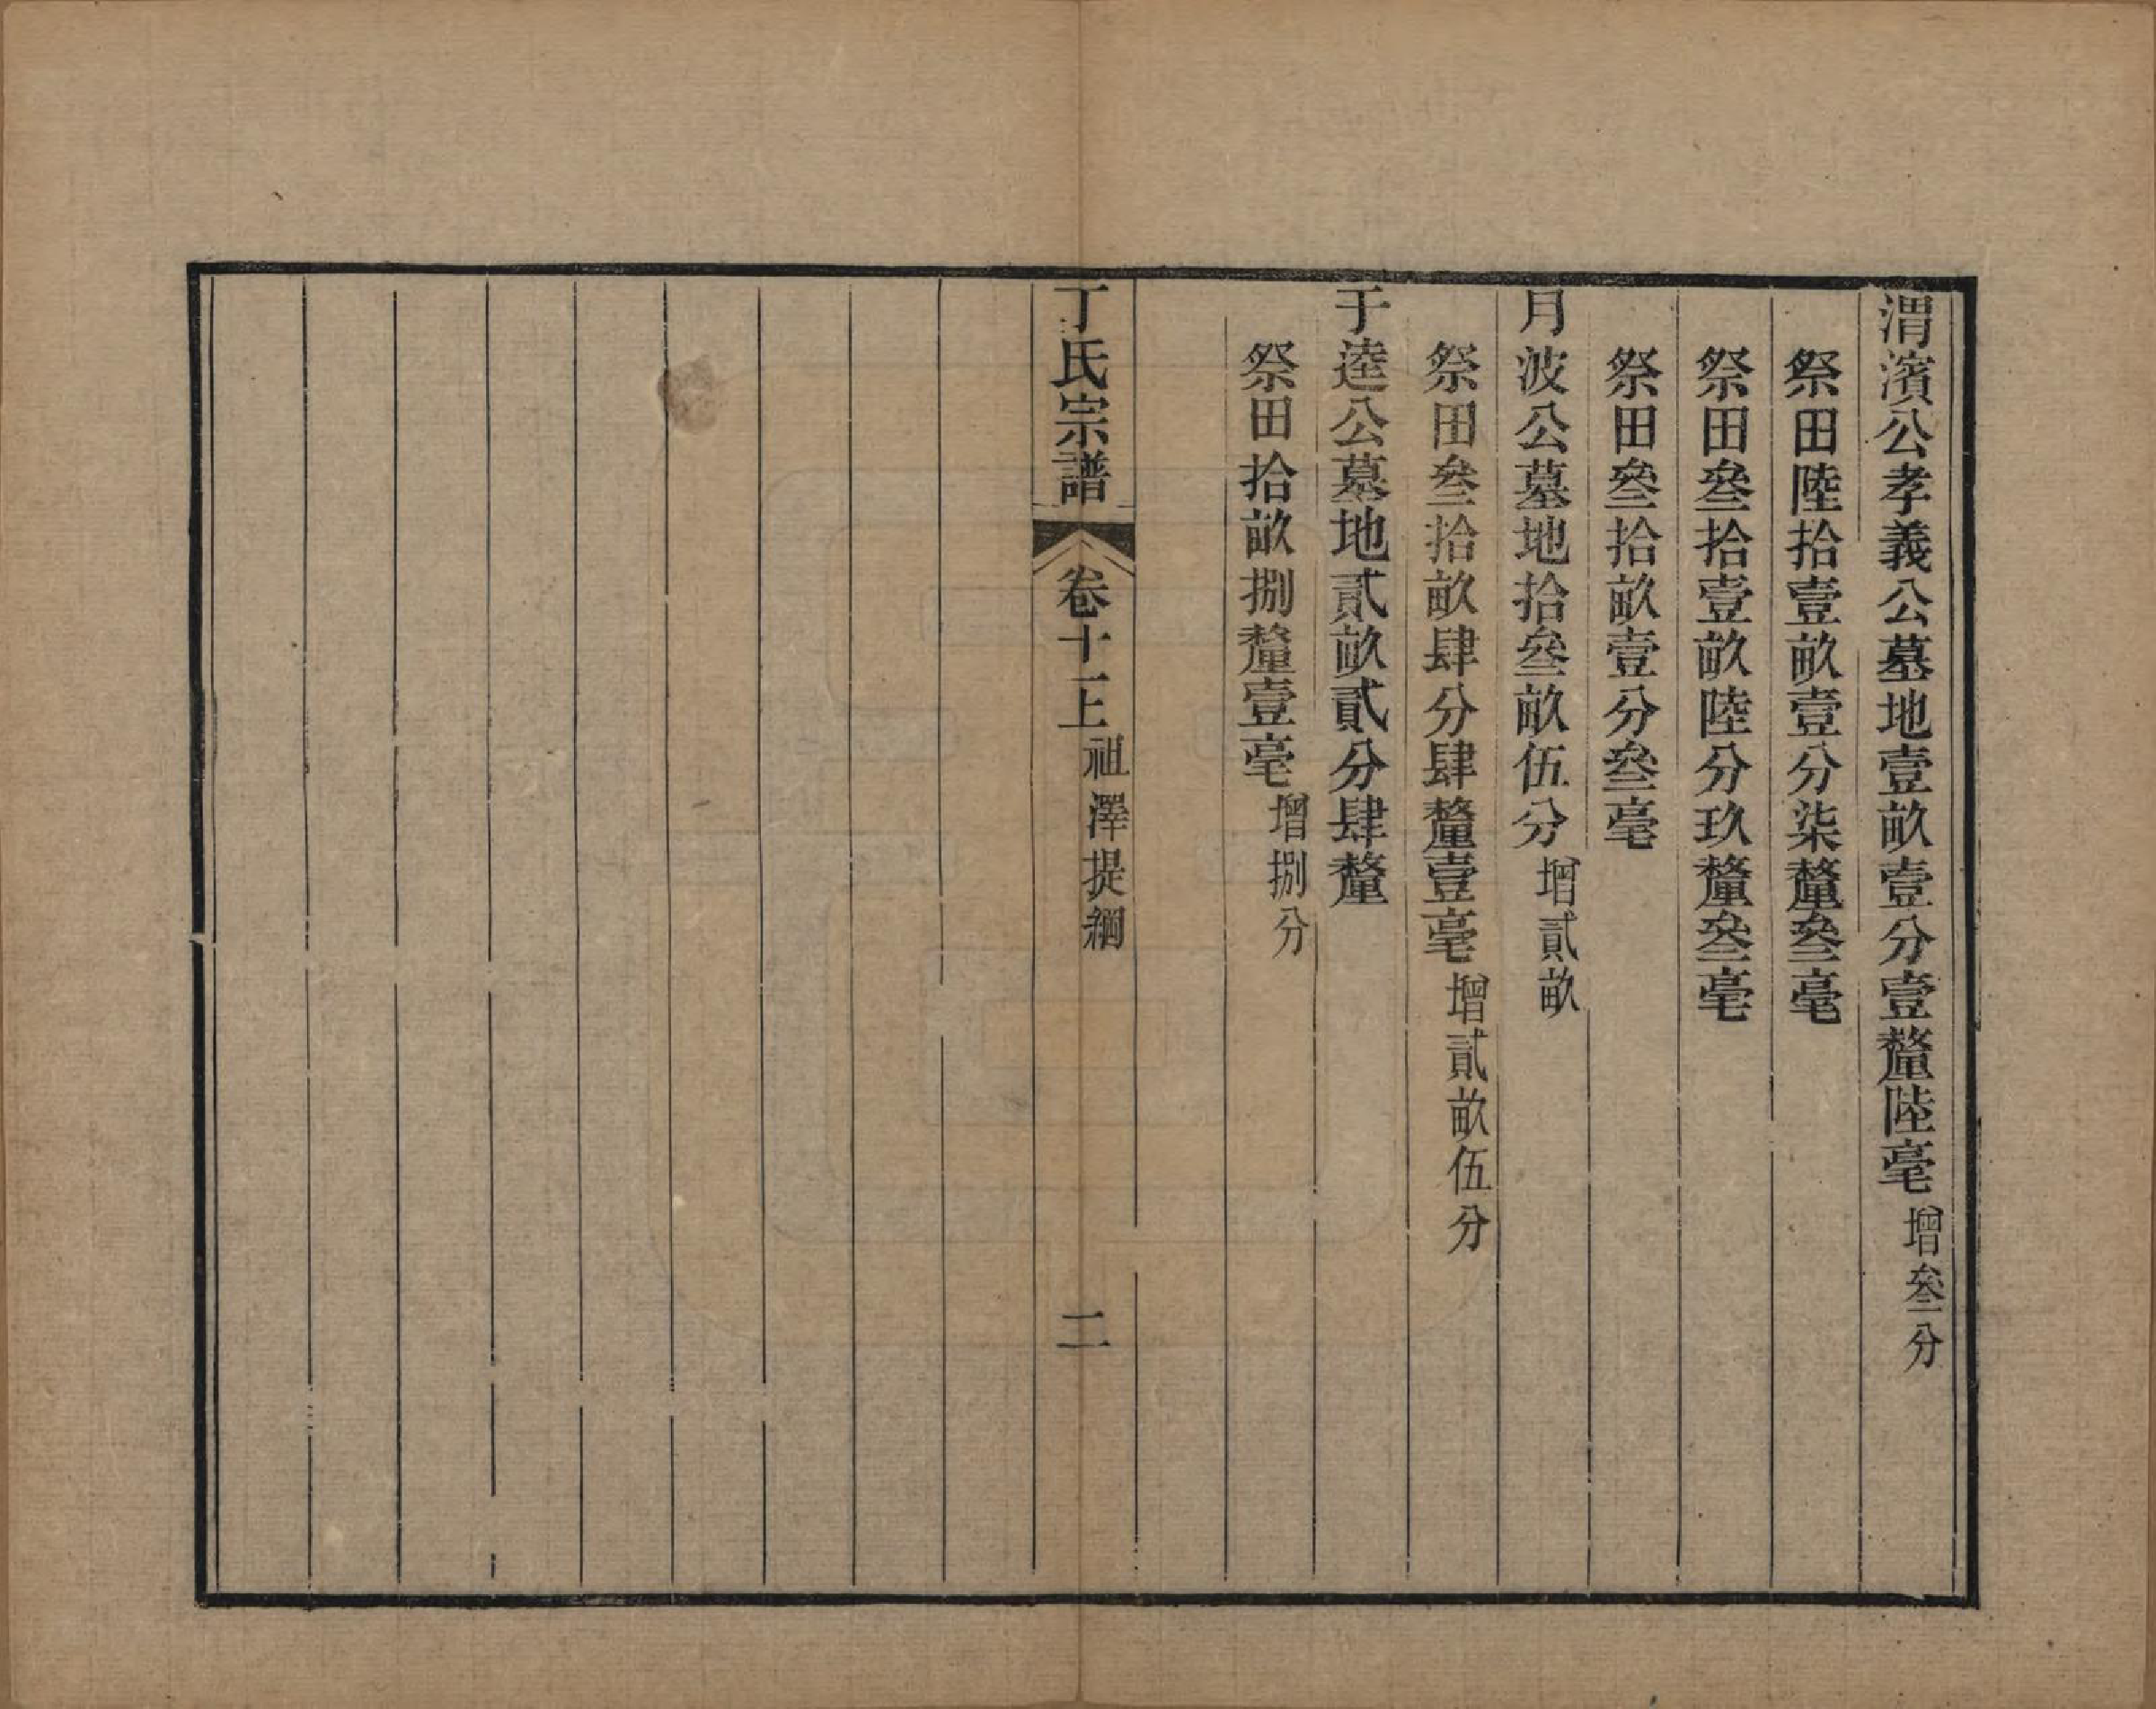 渭濱公孝義公墓地壹畝壹分壹釐陸毫增叄分
祭田陸拾壹畝壹分柒釐叄毫
祭田叄拾壹畝陸分玖釐叄毫
祭田叄拾畝壹分叄毫
月波公墓地拾叄畝伍分增貳畝
祭田叄拾畝肆分肆釐壹毫增貳畝伍分
于逵公墓地貳畝貳分肆釐
祭田拾畝捌釐壹毫增捌分
丁氏宗譜 卷十一上祖澤提綱 二